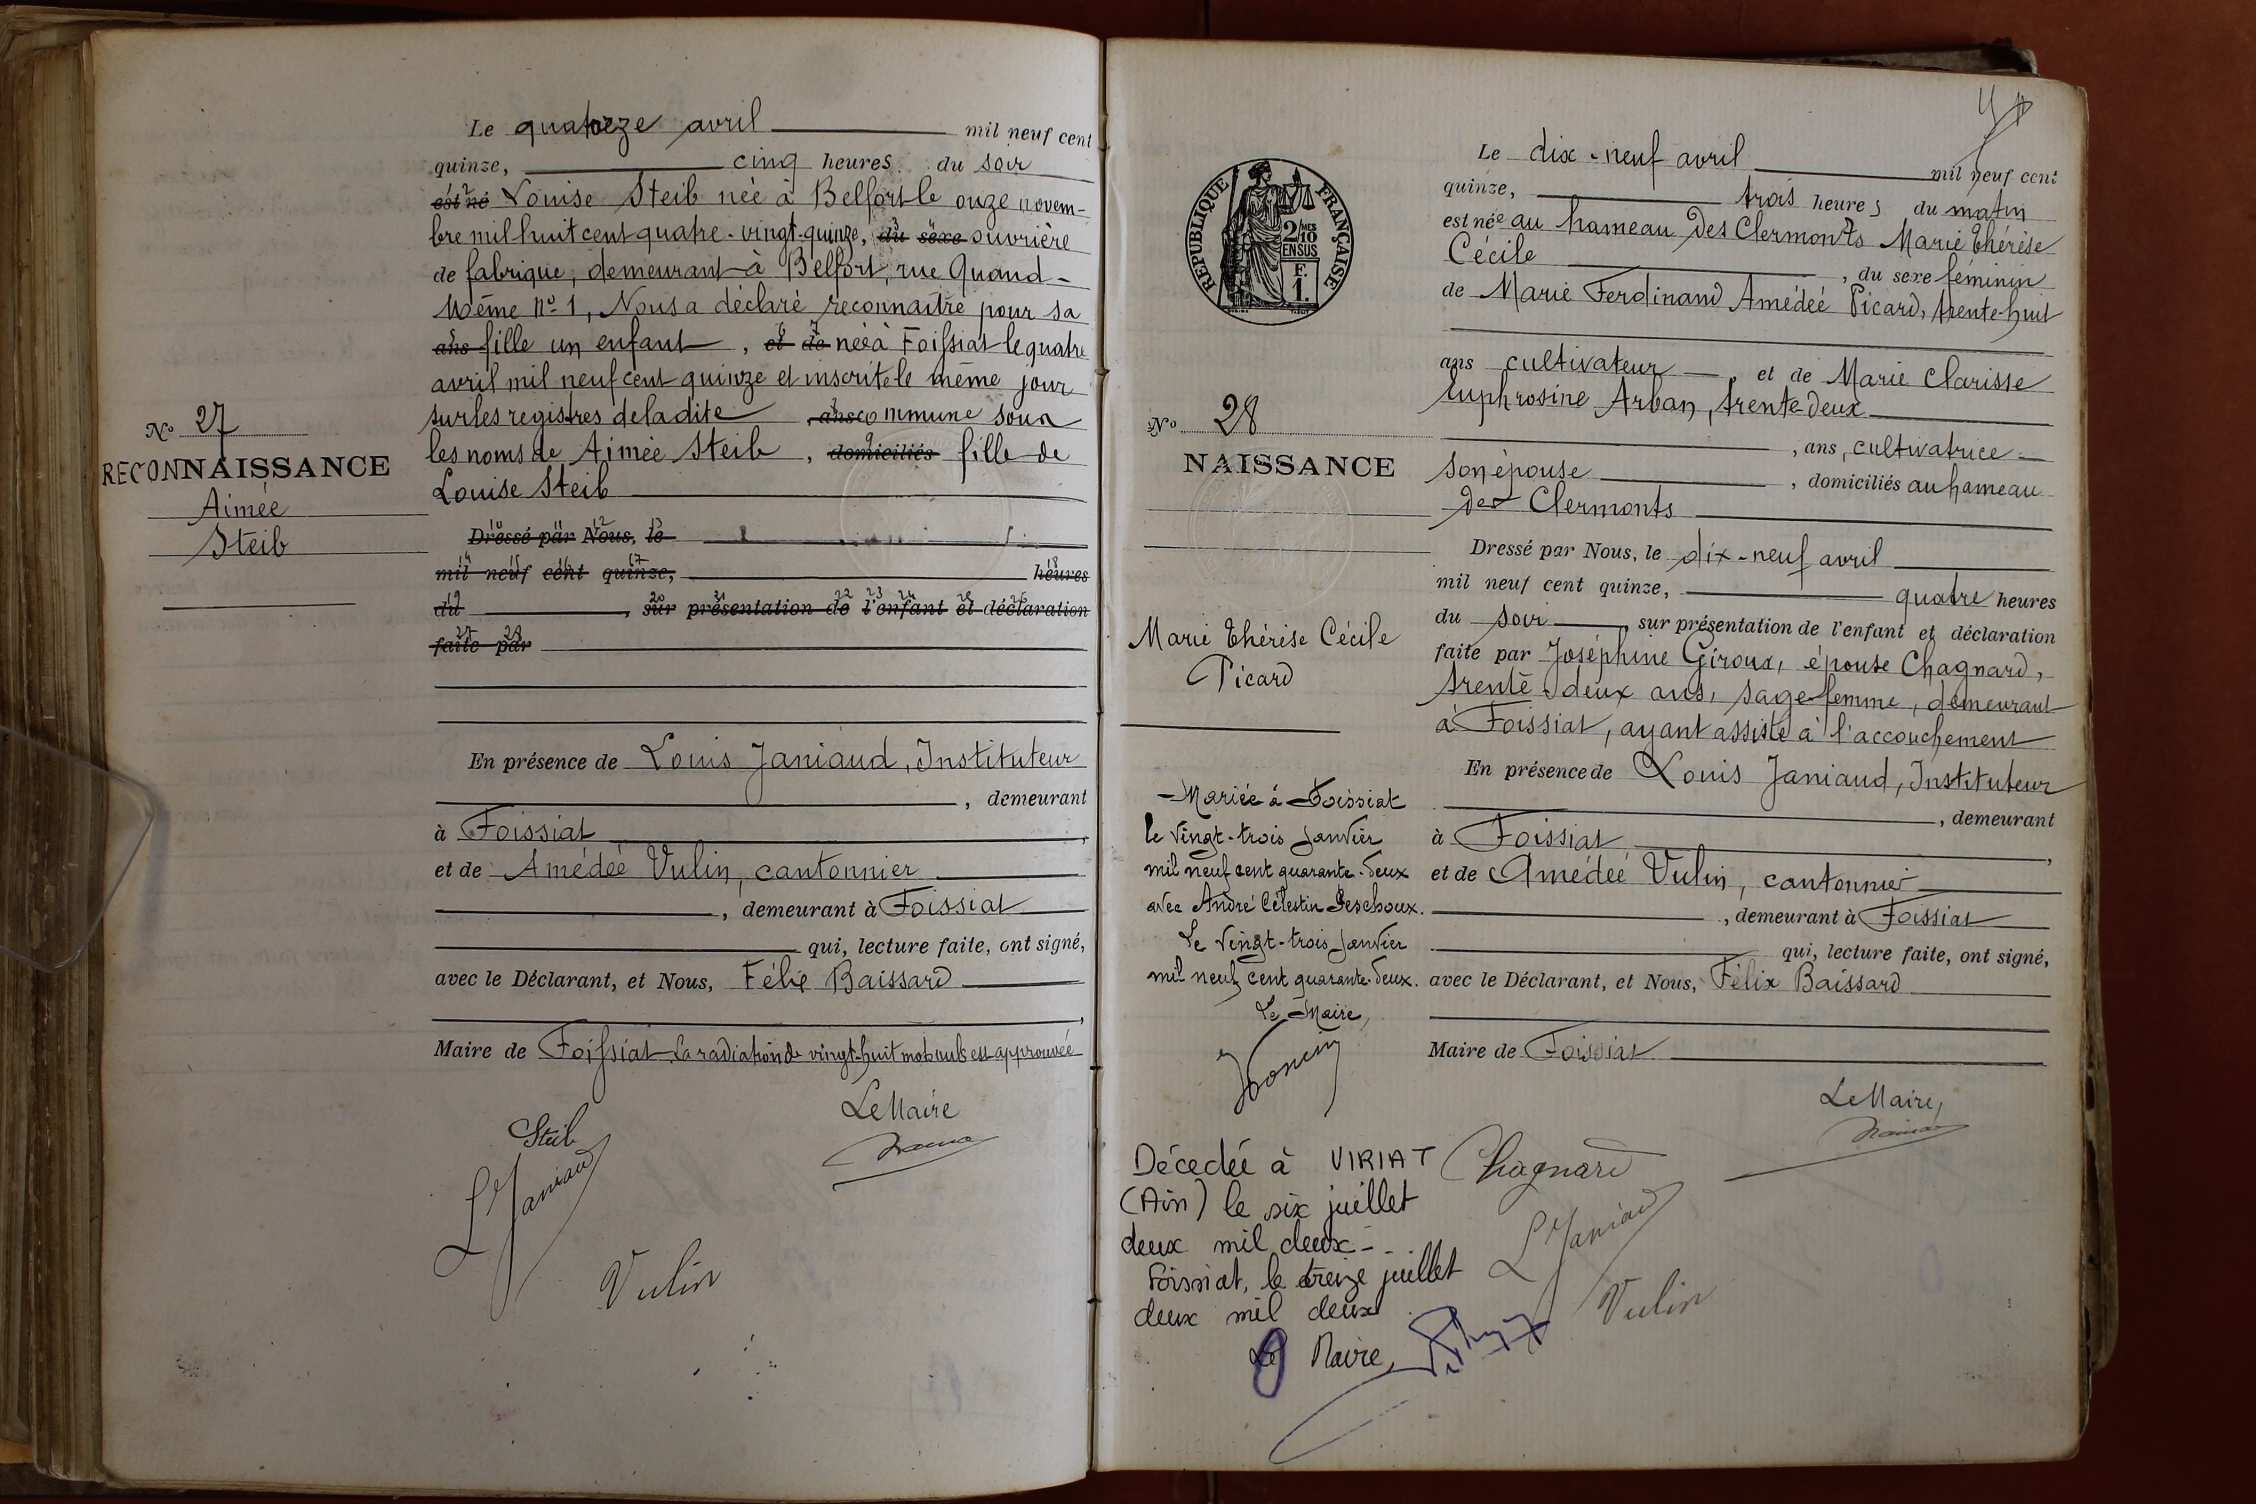 Le quatorze avril mil neuf cent
quinze, cinq heures du soir
est né Louise Steib née à Belfort le onze novem-
bre mil huit cent quatre-vingt-quinze, du sexe ouvrière
de fabrique, demeurant à Belfort, rue Quand-
Même N° 1, Nous a déclaré reconnaître pour sa
ans fille un enfant, et de née à Foissiat le quatre
avril mil neuf cent quinze et inscrite le même jour
sur les registres de la dite ans commune sous
les noms de Aimée Steib, domiciliés fille de
Louise Steib
N° 27
RECONNAISSANCE
Aimée
Steib
Dressé par Nous, le
mil neuf cent quinze, heures
du , sur présentation de l'enfant et déclaration
faite par
En présence de Louis Janiaud, Instituteur
, demeurant
à Foissiat ,
et de Amédée Vulin, cantonnier
, demeurant à Foissiat
qui, lecture faite, ont signé,
avec le Déclarant, et Nous, Félix Baissard
,
Maire de Foissiat. La radiation de vingt-huit mots nuls est approuvée
Le Maire
Steib
L Janiaud
Vulin
Le dix-neuf avril mil neuf cent
quinze, trois heures du matin
est née au hameau des Clermonts Marie Thérèse
Cécile , du sexe féminin
de Marie Ferdinand Amédée Picard, trente-huit
ans cultivateur , et de Marie Clarisse
Euphrosine Arban, trente-deux
, ans, cultivatrice
son épouse , domiciliés au hameau
des Clermonts
RÉPUBLIQUE FRANÇAISE
2/10 MES
EN SUS
F.
1.
N° 28
NAISSANCE
Marie Thérèse Cécile
Picard
Dressé par Nous, le dix-neuf avril
mil neuf cent quinze, quatre heures
du soir , sur présentation de l'enfant et déclaration
faite par Joséphine Giroux, épouse Chagnard,
trente-deux ans, sage-femme, demeurant
à Foissiat, ayant assisté à l'accouchement
En présence de Louis Janiaud, Instituteur
, demeurant
à Foissiat ,
et de Amédée Vulin, cantonnier
, demeurant à Foissiat
qui, lecture faite, ont signé,
avec le Déclarant, et Nous, Félix Baissard
Maire de Foissiat
Le Maire,
Chagnard
L Janiaud
Vulin
Mariée à Foissiat
le vingt-trois Janvier
mil neuf cent quarante-deux
avec André Célestin Peschoux.
Le vingt-trois Janvier
mil neuf cent quarante-deux.
Le Maire,
Décédée à VIRIAT
(Ain) le six juillet
deux mil deux -
Foissiat, le treize juillet
deux mil deux
Le Maire,